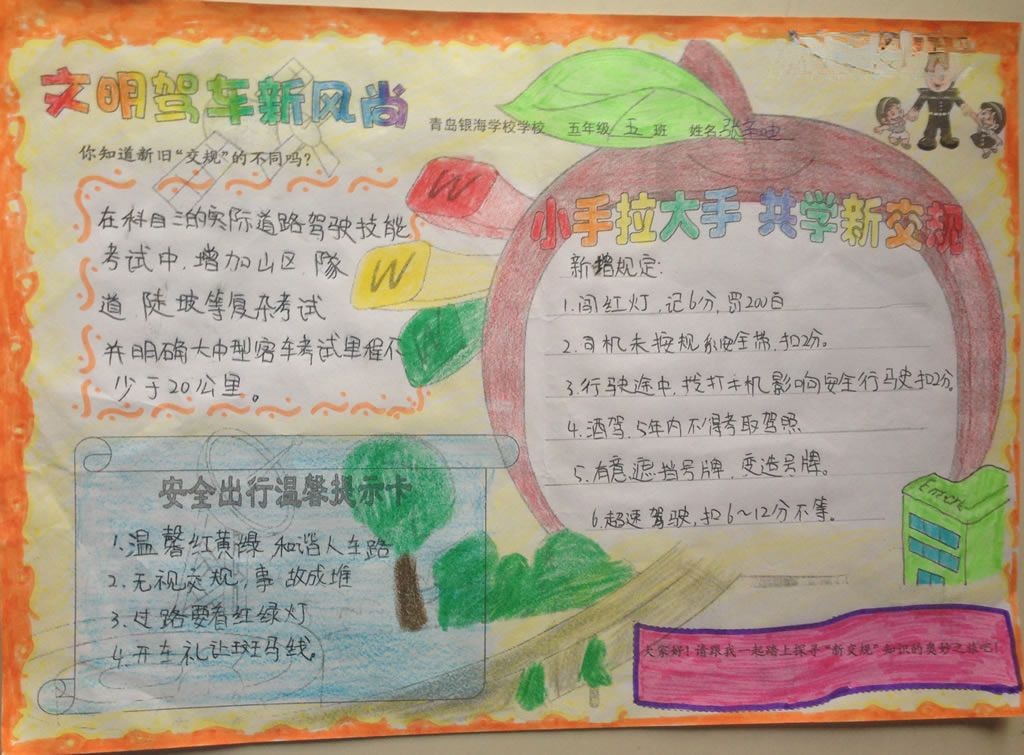 文明驾车新风尚
青岛银海学校学校 五年级 五 班 姓名 张
你知道新旧“交规”的不同吗?
在科目三的实际道路驾驶技能
考试中,增加山区、隧
道、陡坡等复杂考试
并明确大中型客车考试里程不
少于20公里。
W
W
小手拉大手 共学新交规
新增规定:
1.闯红灯,记6分,罚200百
2.司机未按规系安全带,扣2分。
3.行驶途中,拨打手机影响安全行驶扣2分。
4.酒驾,5年内不得考取驾照
5.有意遮挡号牌,变造号牌。
6.超速驾驶,扣6~12分不等。
安全出行温馨提示卡
1.温馨红黄绿 和谐人车路
2.无视交规,事故成堆
3.过路要看红绿灯
4.开车礼让斑马线。
大家好!请跟我一起踏上探寻“新交规”知识的奥妙之旅吧!